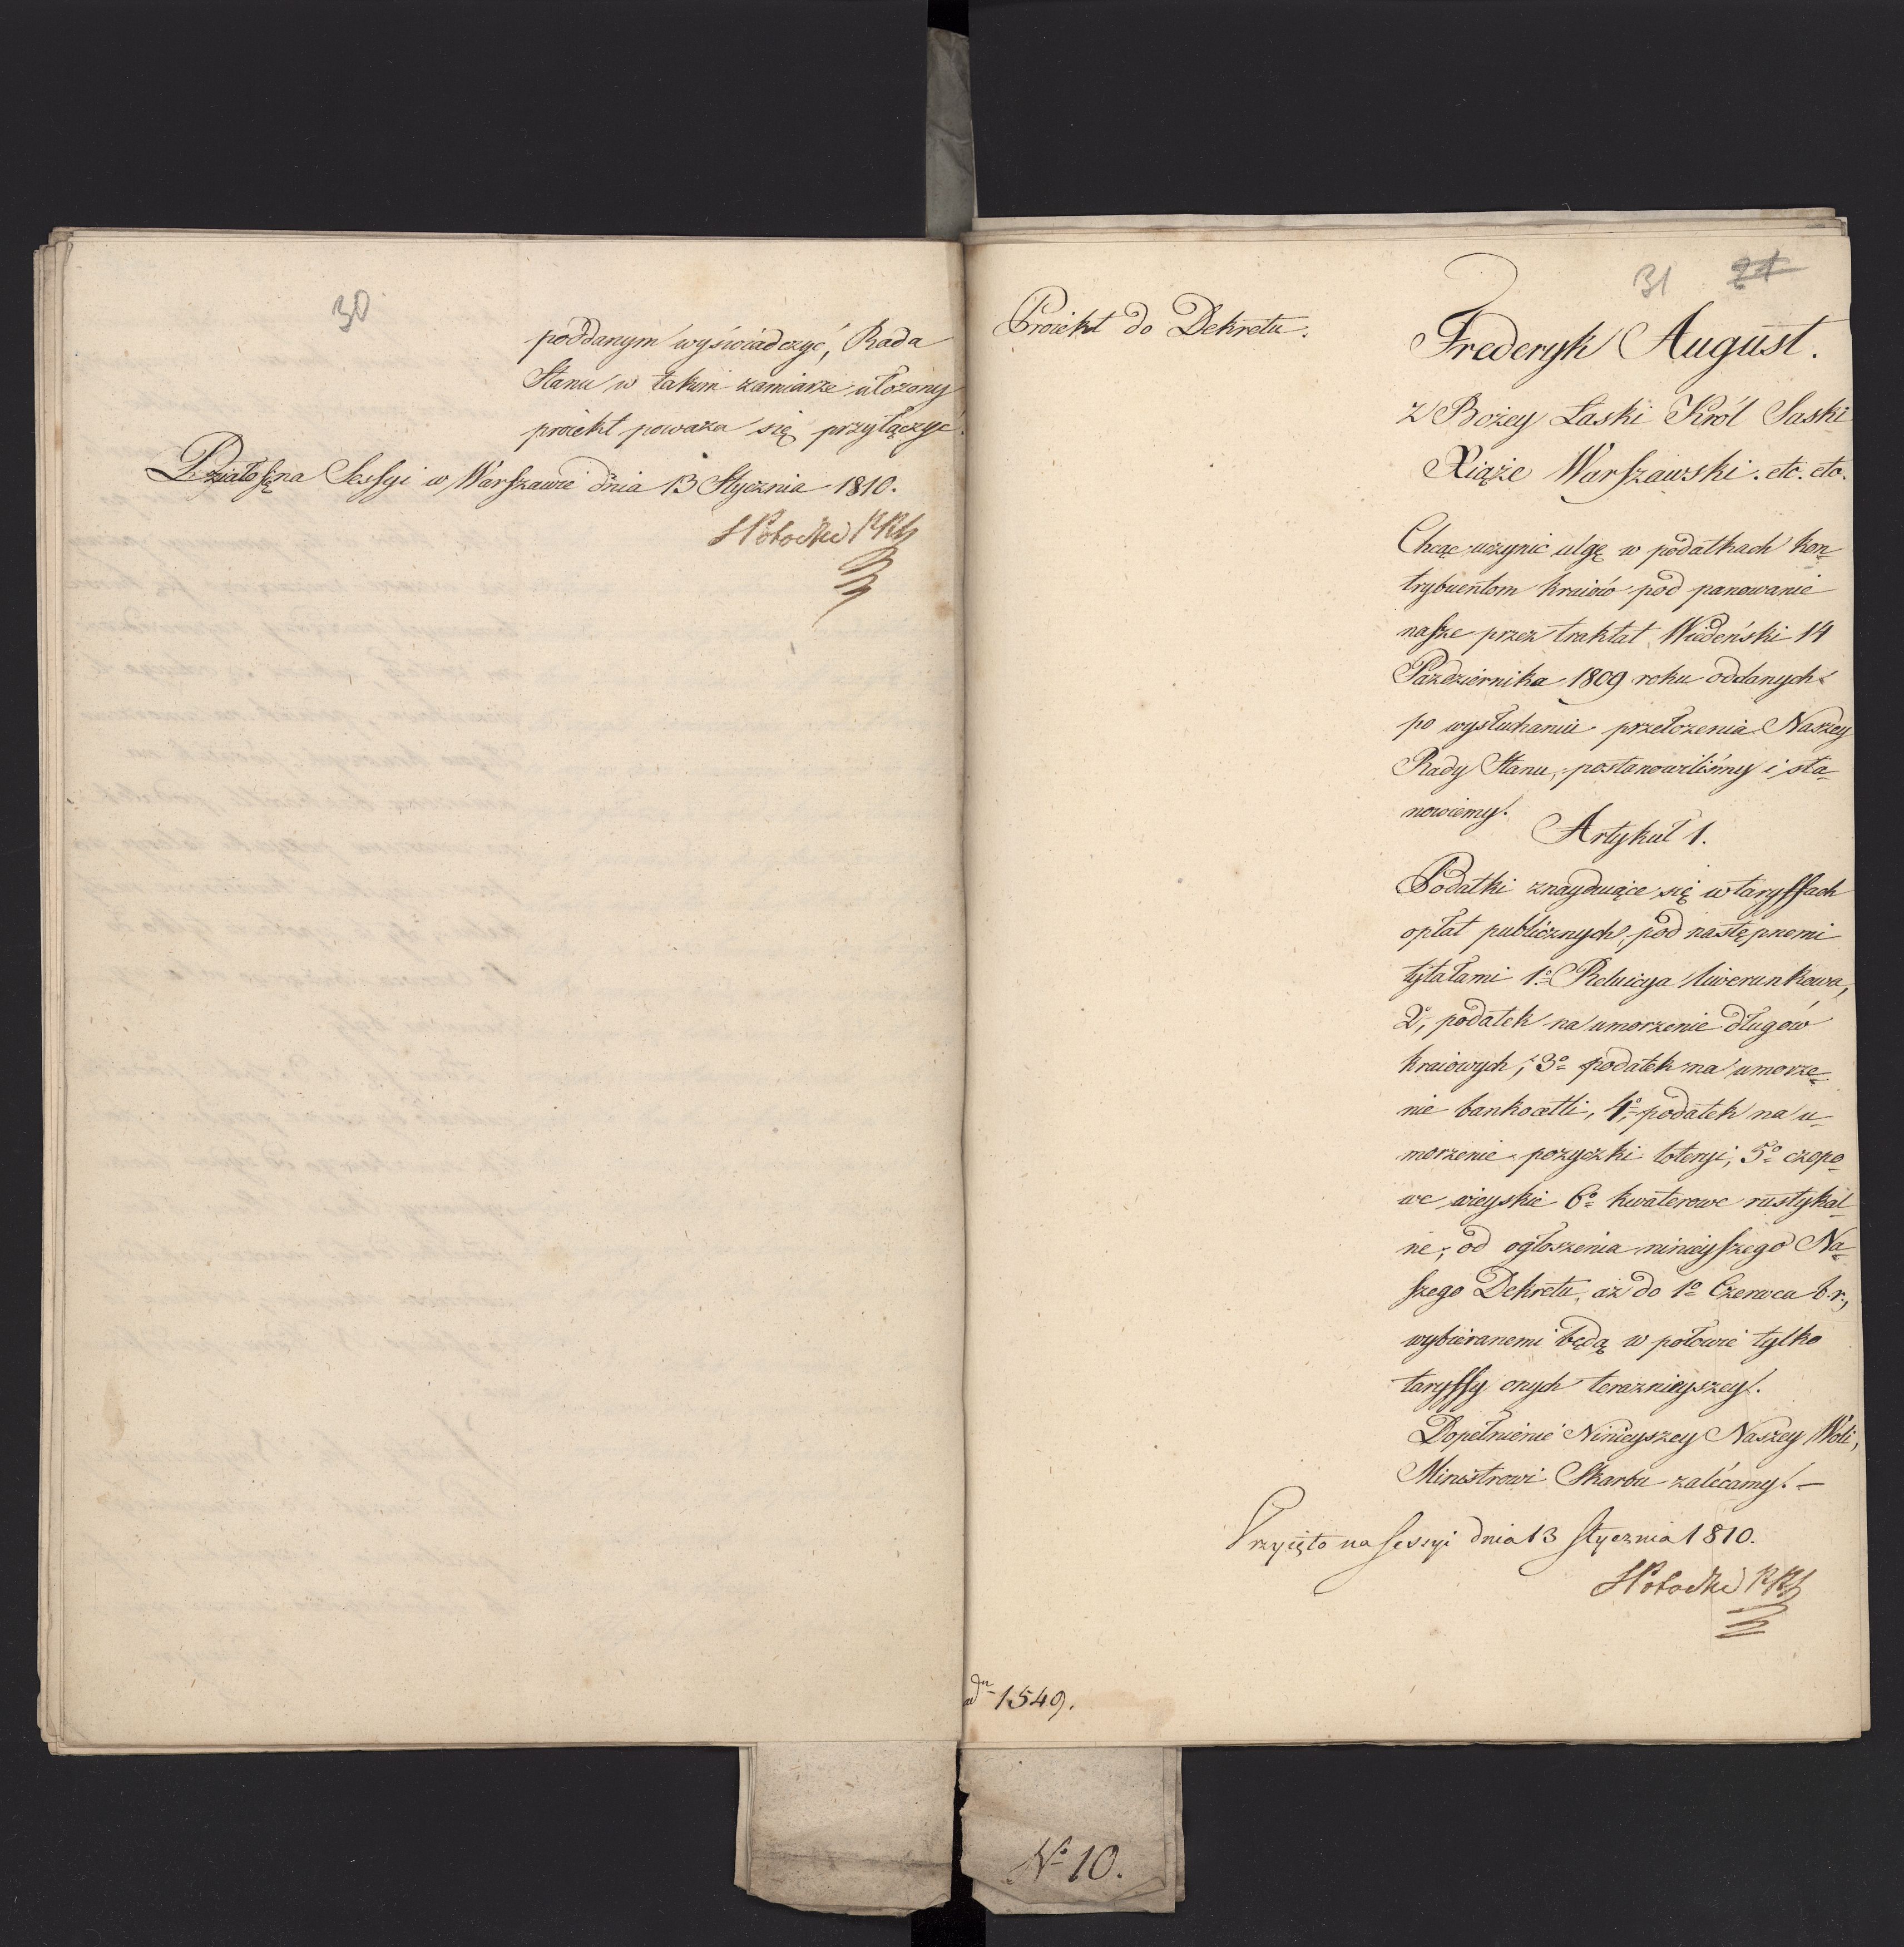 30
poddanym wyświadczyć, Rada
Stanu w takim zamiarze ułożony
proiekt poważa się przyłączyć.
Działo się na Sessyi w Warszawie dnia 13 Stycznia 1810.
31 21
Proiekt do Dekretu.
Frederyk August.
z Bożey Łaski Król Saski
Xiąże Warszawski. etc. etc.
Chcąc uczynić ulgę w podatkach kon-
trybuentom kraiów pod panowanie
nasze przez traktat Wiedeński 14
Pazdziernika 1809 roku oddanych
po wysłuchaniu przełożenia Naszey
Rady Stanu, postanowiliśmy i sta-
nowiemy.
Artykuł 1.
Podatki znayduiące się w taryffach
opłat publicznych, pod następnemi
tytułami 1o Reluicya liwerunkowa,
2o, podatek na umorzenie długów
kraiowych, 3o podatek na umorze-
nie bankocetli, 4o, podatek na u-
morzenie pożyczki loteryi, 5o czopo-
we wieyskie 6o kwaterowe rustykal-
ne, od ogłoszenia ninieyszego Na-
szego Dekretu, aż do 1o Czerwca b. r.,
wybieranemi będą w połowie tylko
taryffy onych teraznieyszey.
Dopełnienie Ninieyszey Naszey Woli,
Ministrowi Skarbu zalécamy. —
Przyięto na Sessyi dnia 13 Stycznia 1810.
ad n 1549.
No 10.